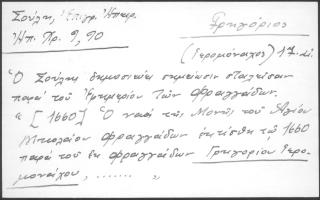 Σούλη, Ἐπιγρ. Ἠπειρ.
Ἠπ. Χρ. 9, 90
Γρηγόριος
(Ἱερομόναχος) 17. αἰ
Ὁ Σούλης δημοσιεύει σημείωσιν σταλεῖσαν
παρὰ τοῦ Ἐφημερίου τῶν Φραγγάδων.
" [1660] Ὁ ναὸς τῆς Μονῆς τοῦ Ἁγίου
Νικολάου Φραγγάδων ἐκτίσθη τῷ 1660
παρὰ τοῦ ἐκ Φραγγάδων Γρηγορίου Ἱερο-
μονάχου, ....... "